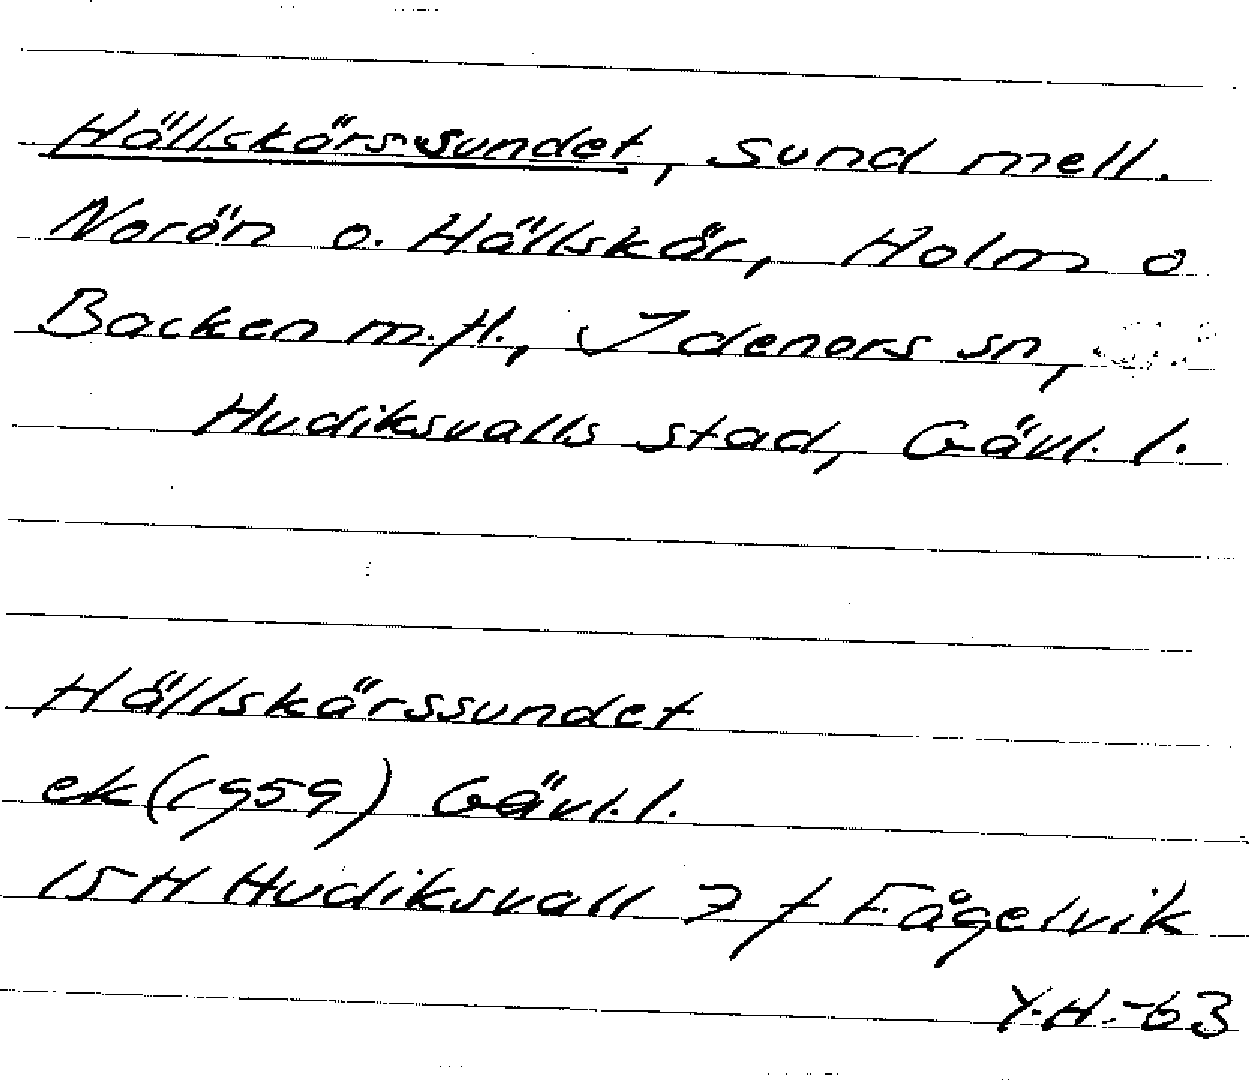 Hällskärssundet, sund mell.
Norön o. Hällskär, Holm o
Backen m.fl., Idenors sn,
Hudiksvalls stad, Gävl. l.
Hällskärssundet
ek (1959) Gävl. l.
15 H Hudiksvall 7 f Fågelvik
Y.H.-63